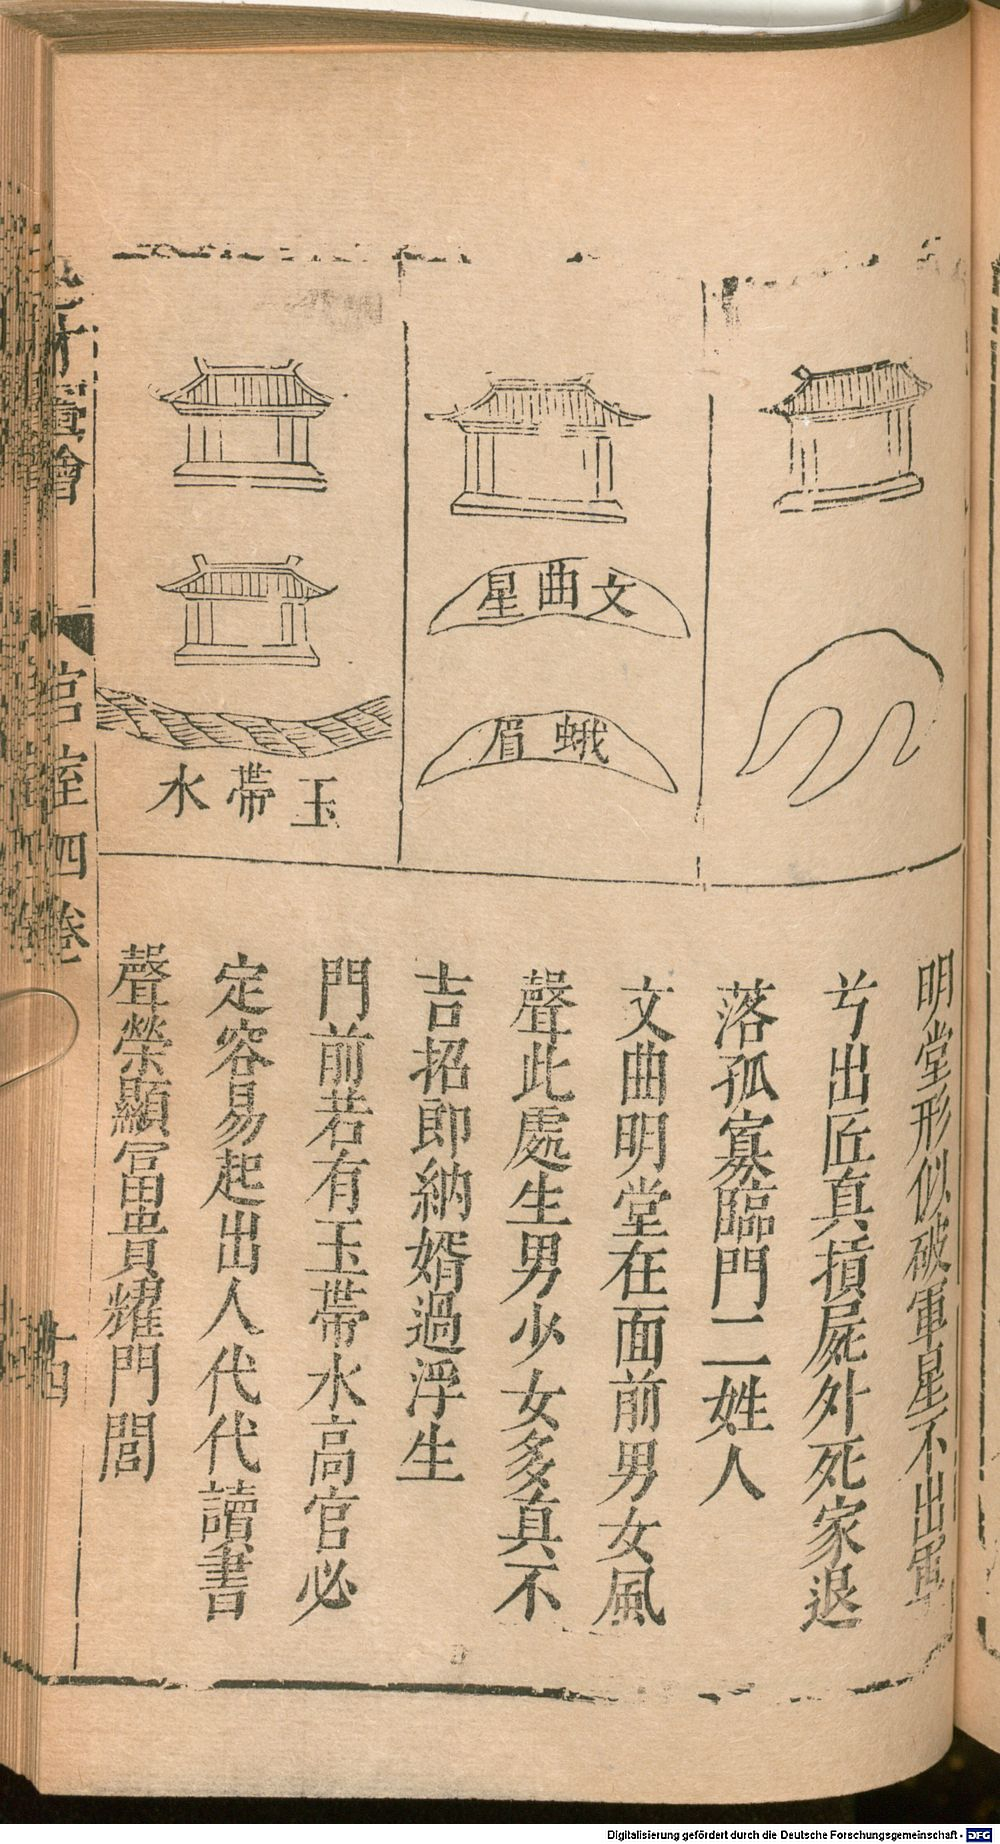 文曲星
蛾眉
玉帶水
明堂形似破軍星不出軍
兮出匠真損屍外死家退
落孤寡臨門二姓人
文曲明堂在面前男女風
聲此處生男少女多真不
吉招即納婿過浮生
門前若有玉帶水高官必
定容易起出人代代讀書
聲榮顯冨貴耀門閭
宮室四卷
Digitalisierung gefördert durch die Deutsche Forschungsgemeinschaft - DFG